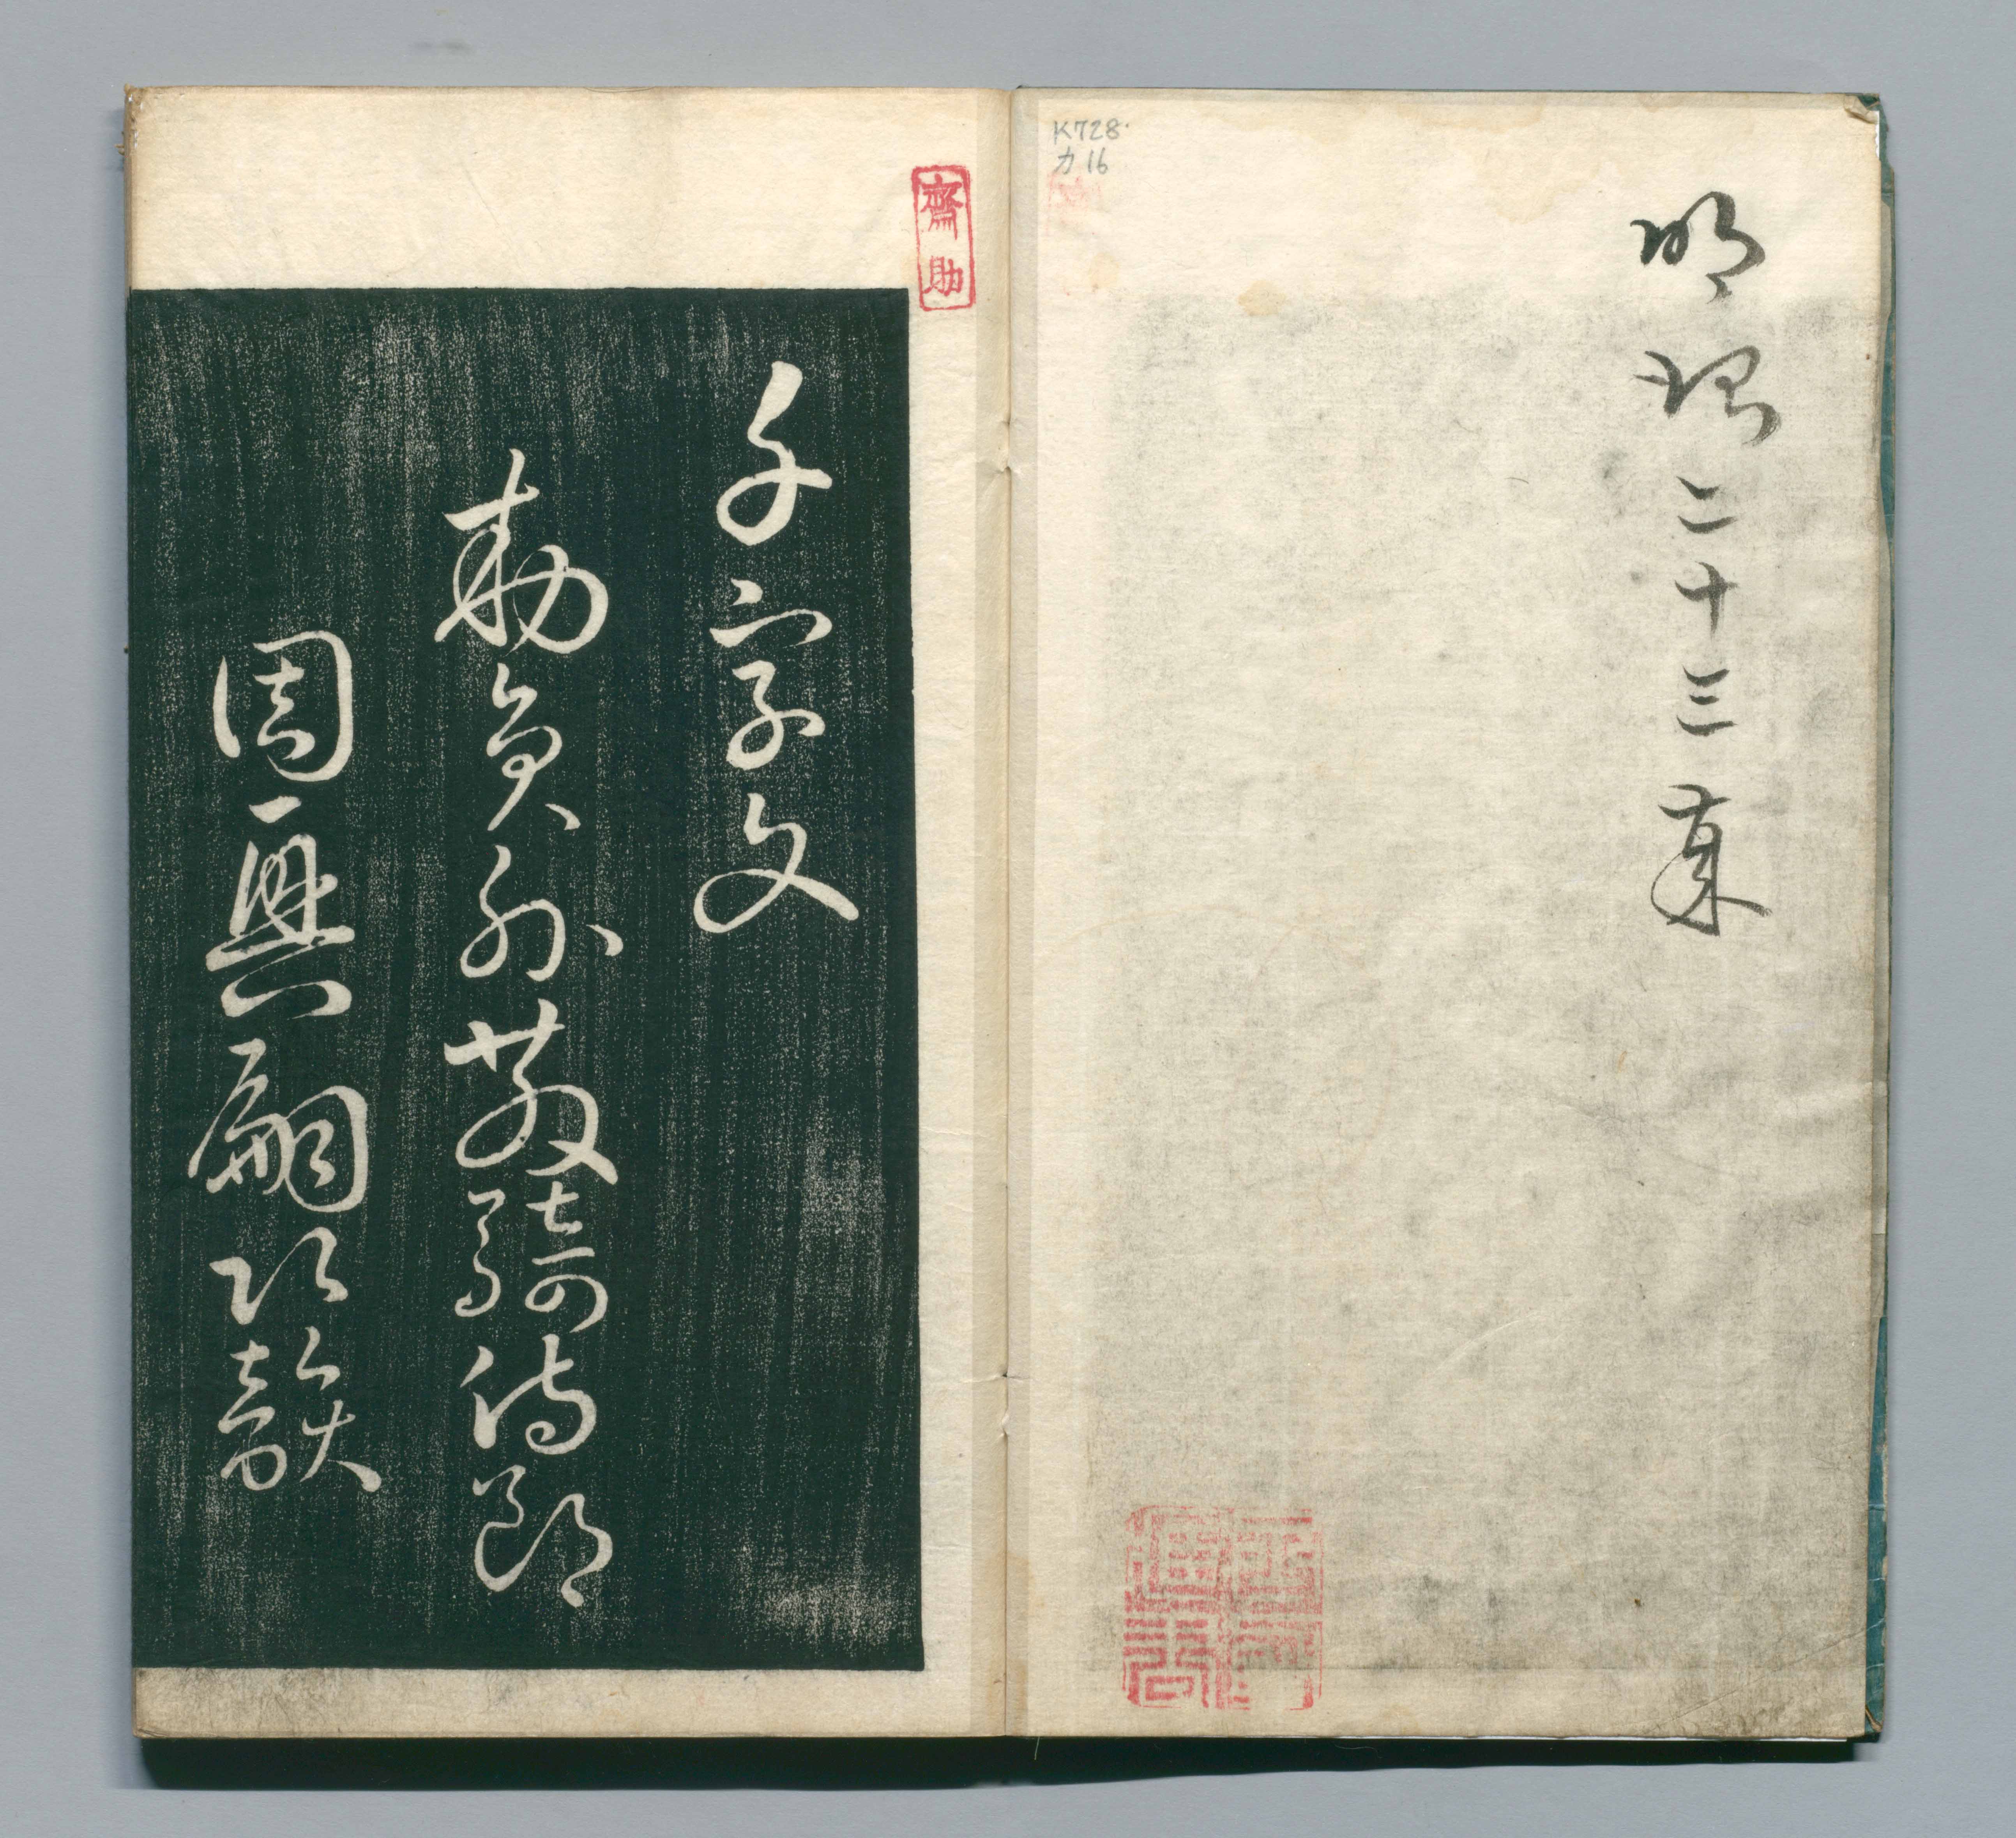 明治二十三年
K728
カ16
齋助
千字文
勅員外散騎侍郎
周興嗣次韻